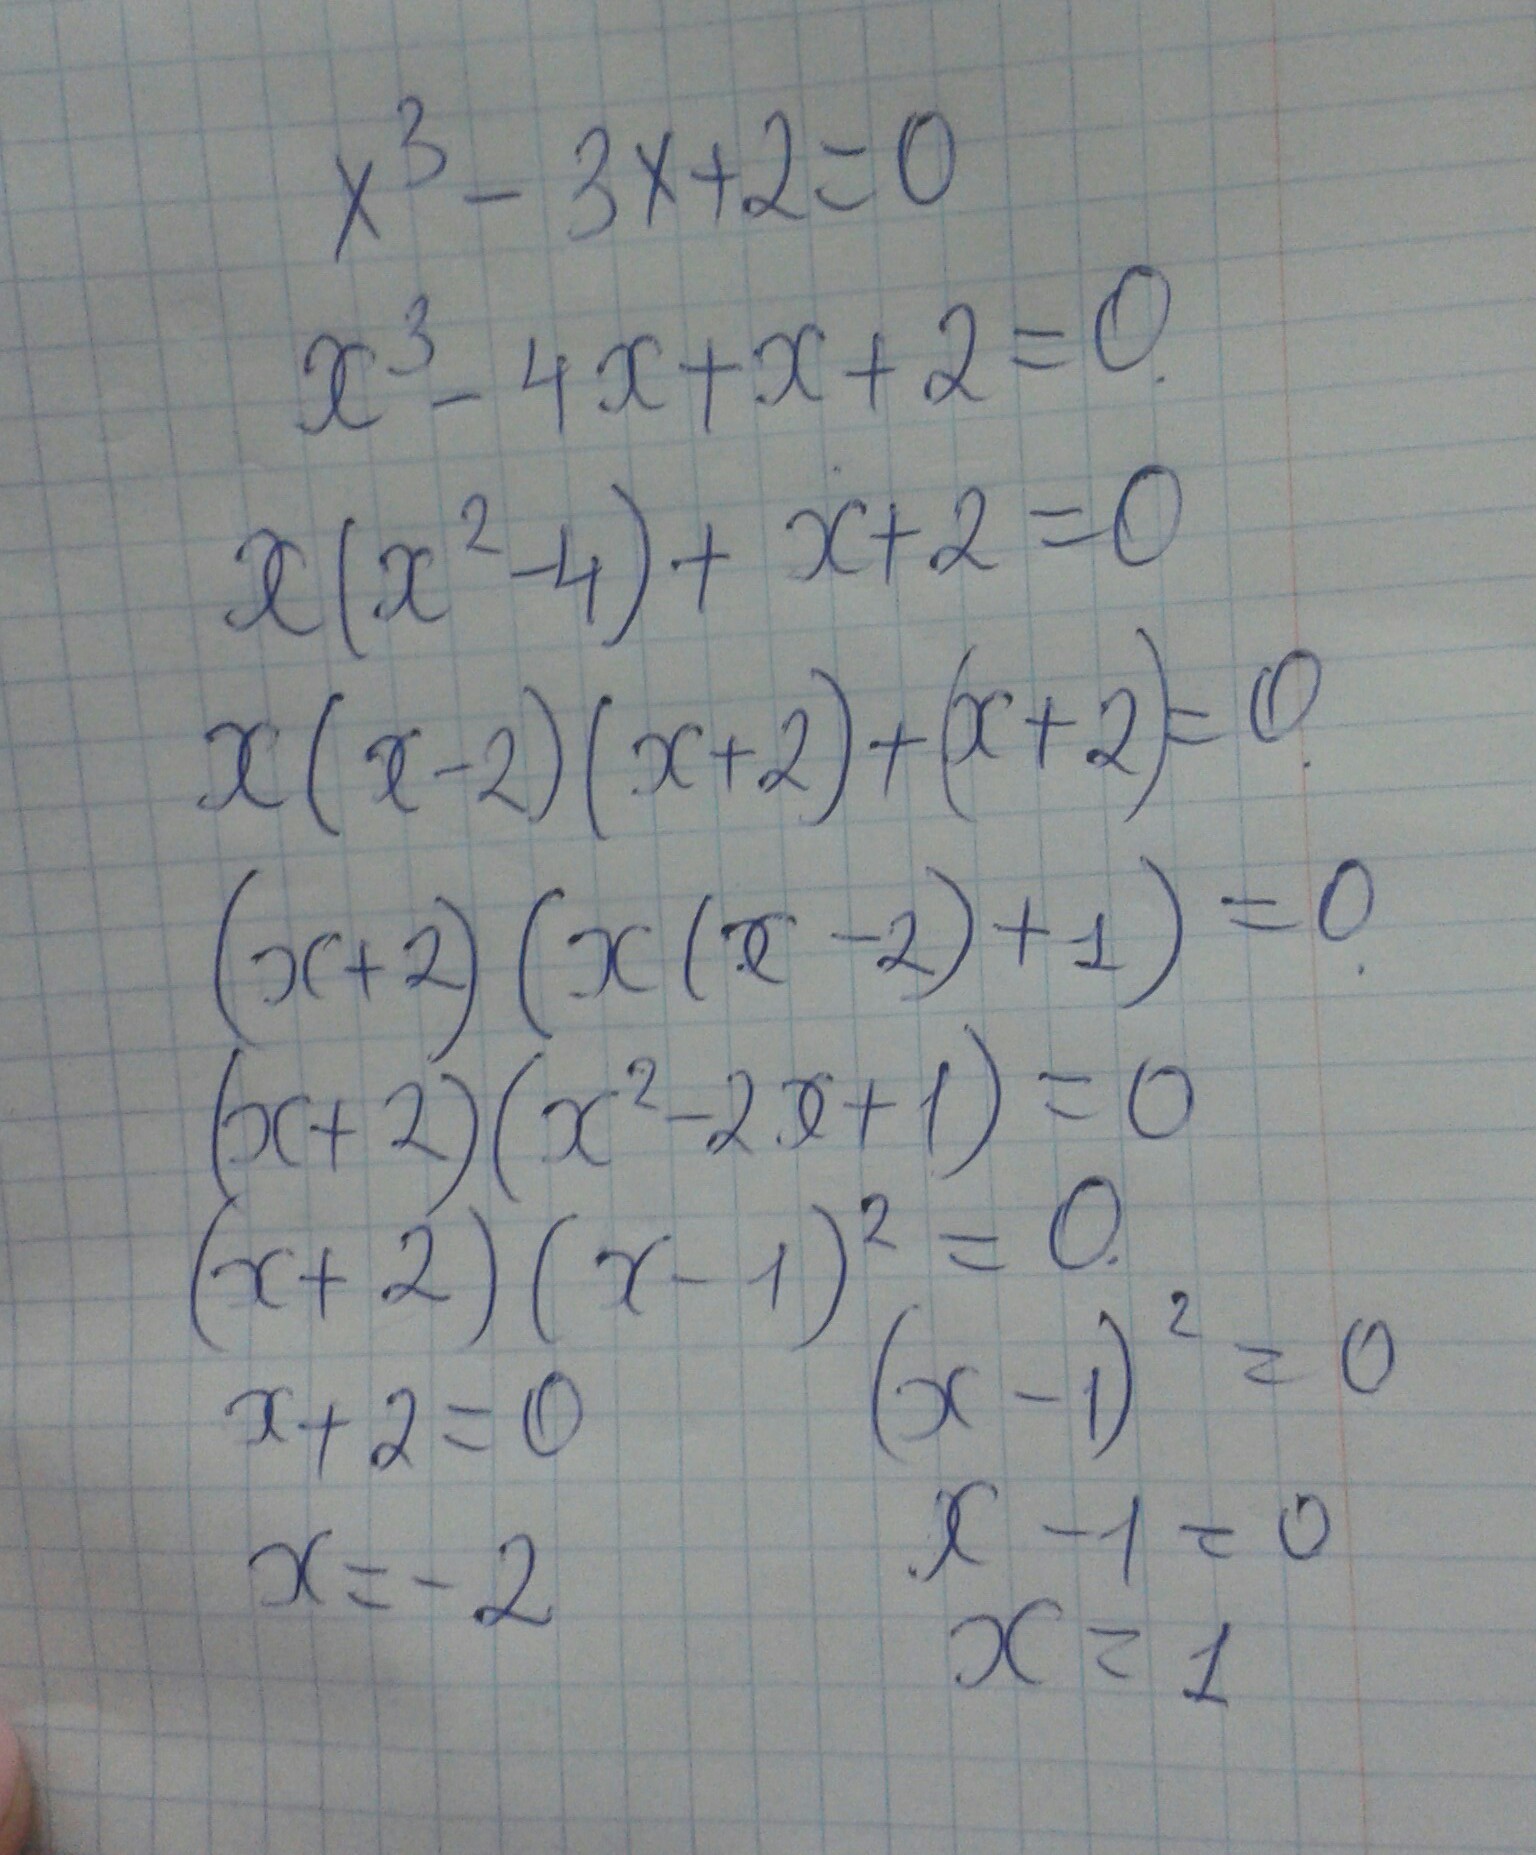 x³ - 3x + 2 = 0
x³ - 4x + x + 2 = 0.
x(x² - 4) + x + 2 = 0
x(x - 2)(x + 2) + (x + 2) = 0.
(x + 2)(x(x - 2) + 1) = 0.
(x + 2)(x² - 2x + 1) = 0
(x + 2)(x - 1)² = 0.
x + 2 = 0 (x - 1)² = 0
x = -2 x - 1 = 0
x = 1